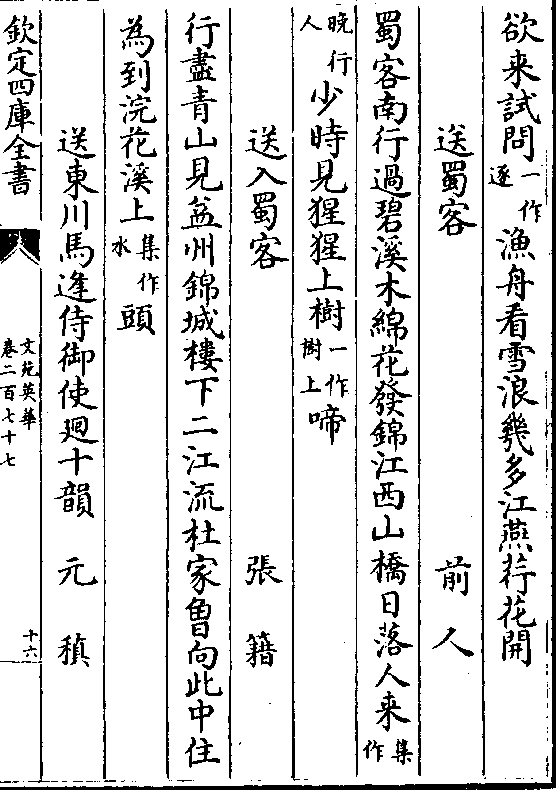 欲来試問一作逐漁舟看雪浪幾多江燕荇花開
送蜀客　前人
蜀客南行過碧溪木綿花發錦江西山橋日落人来集作
晚行人少時見猩猩上樹一作樹上啼
送入蜀客　張籍
行盡青山見益州錦城樓下二江流杜家曽向此中住
為到浣花溪上集作水頭
送東川馬逢侍御使廻十韻　元稹
欽定四庫全書
文苑英華
卷二百七十七
十六